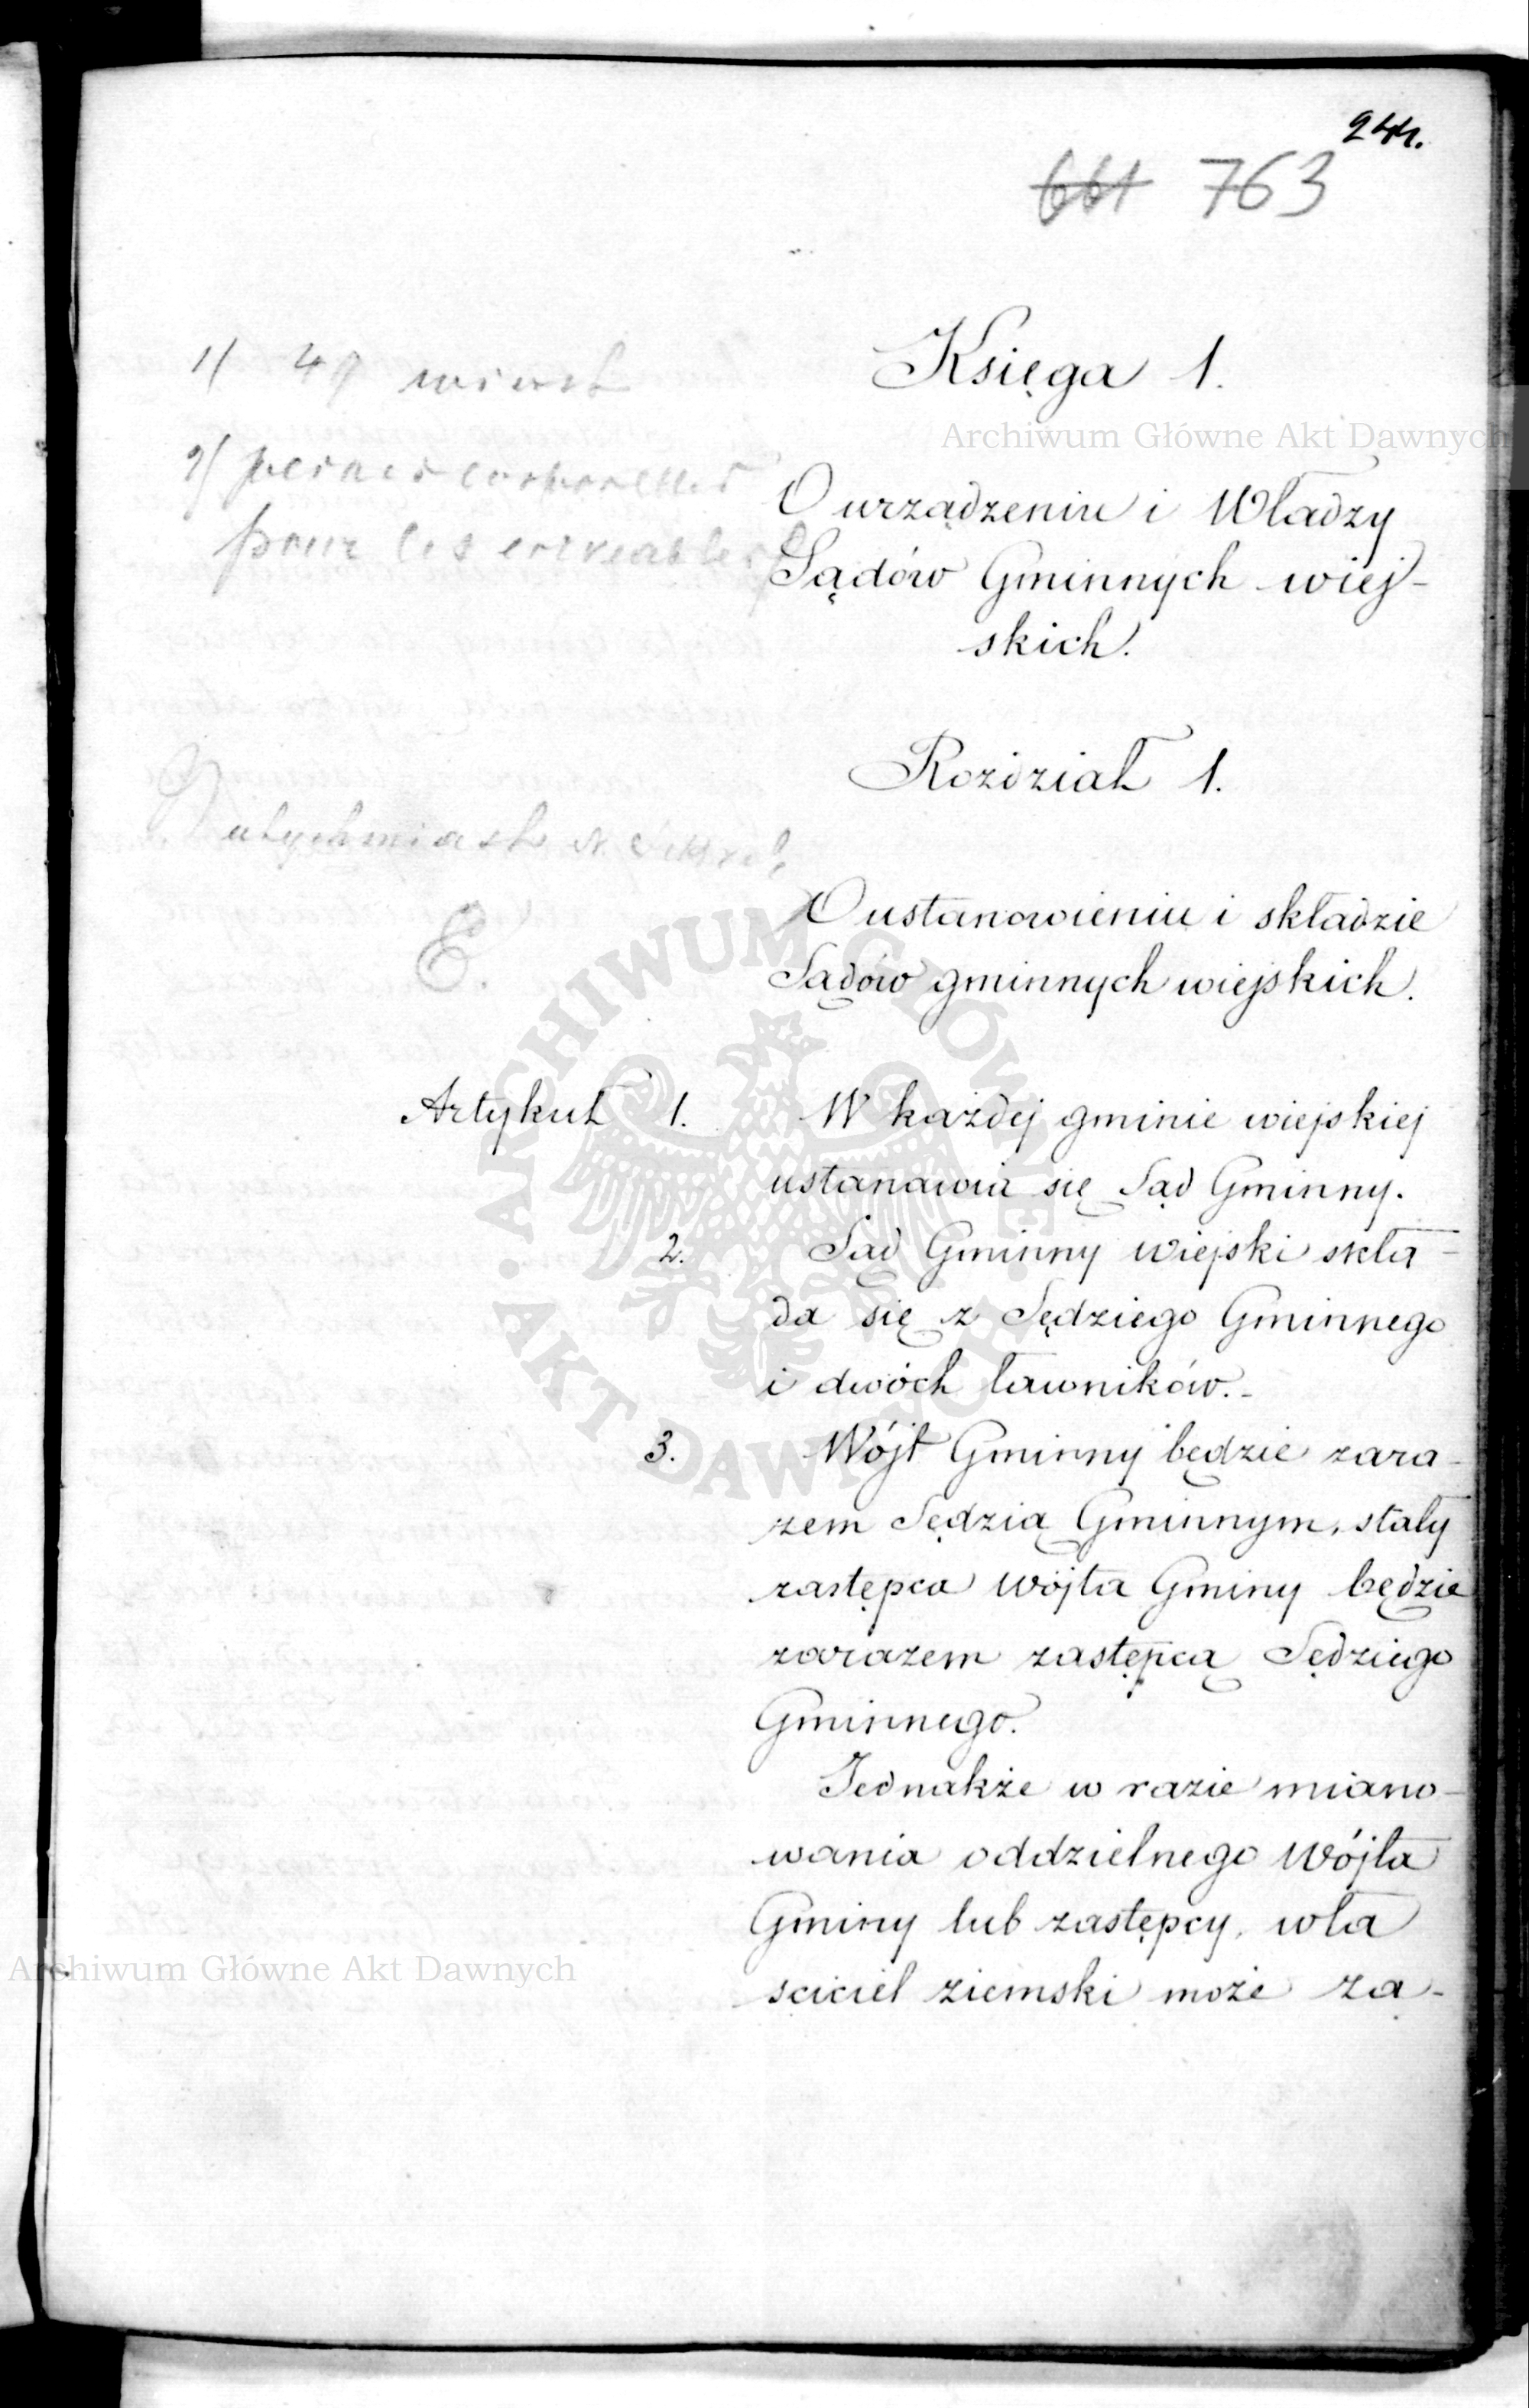 244.
661 763
Księga 1.
O urządzeniu i Władzy
Sądów Gminnych wiej-
skich.
Rozdział 1.
O ustanowieniu i składzie
Sądów gminnych wiejskich.
Artykuł 1. W każdej gminie wiejskiej
ustanawia się Sąd Gminny.
2. Sąd Gminny wiejski skła-
da się z Sędziego Gminnego
i dwóch ławników.-
3. Wójt Gminny będzie zara-
zem Sędzią Gminnym, stały
zastępca wójta Gminy będzie
zarazem zastępcą Sędziego
Gminnego.
Jednakże w razie miano-
wania oddzielnego Wójta
Gminy lub zastępcy, wła
sciciel ziemski może za-
1) 49 miast
2) peines corporelles
pour les
Natychmiast
E.
Archiwum Główne Akt Dawnych
ARCHIWUM GŁÓWNE AKT DAWNYCH
Archiwum Główne Akt Dawnych